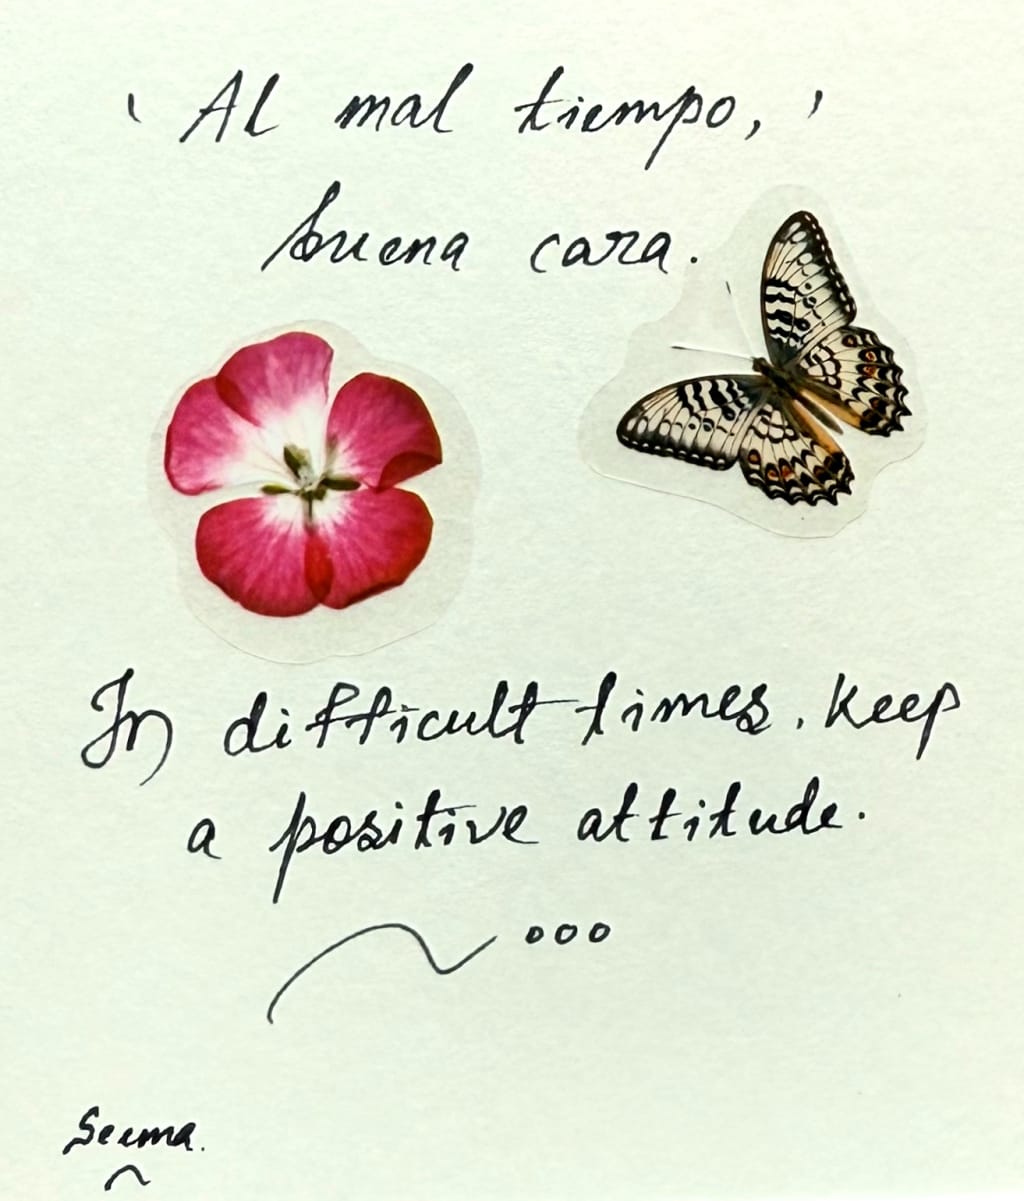 ' Al mal tiempo, '
buena cara.
In difficult times, keep
a positive attitude.
Seema.